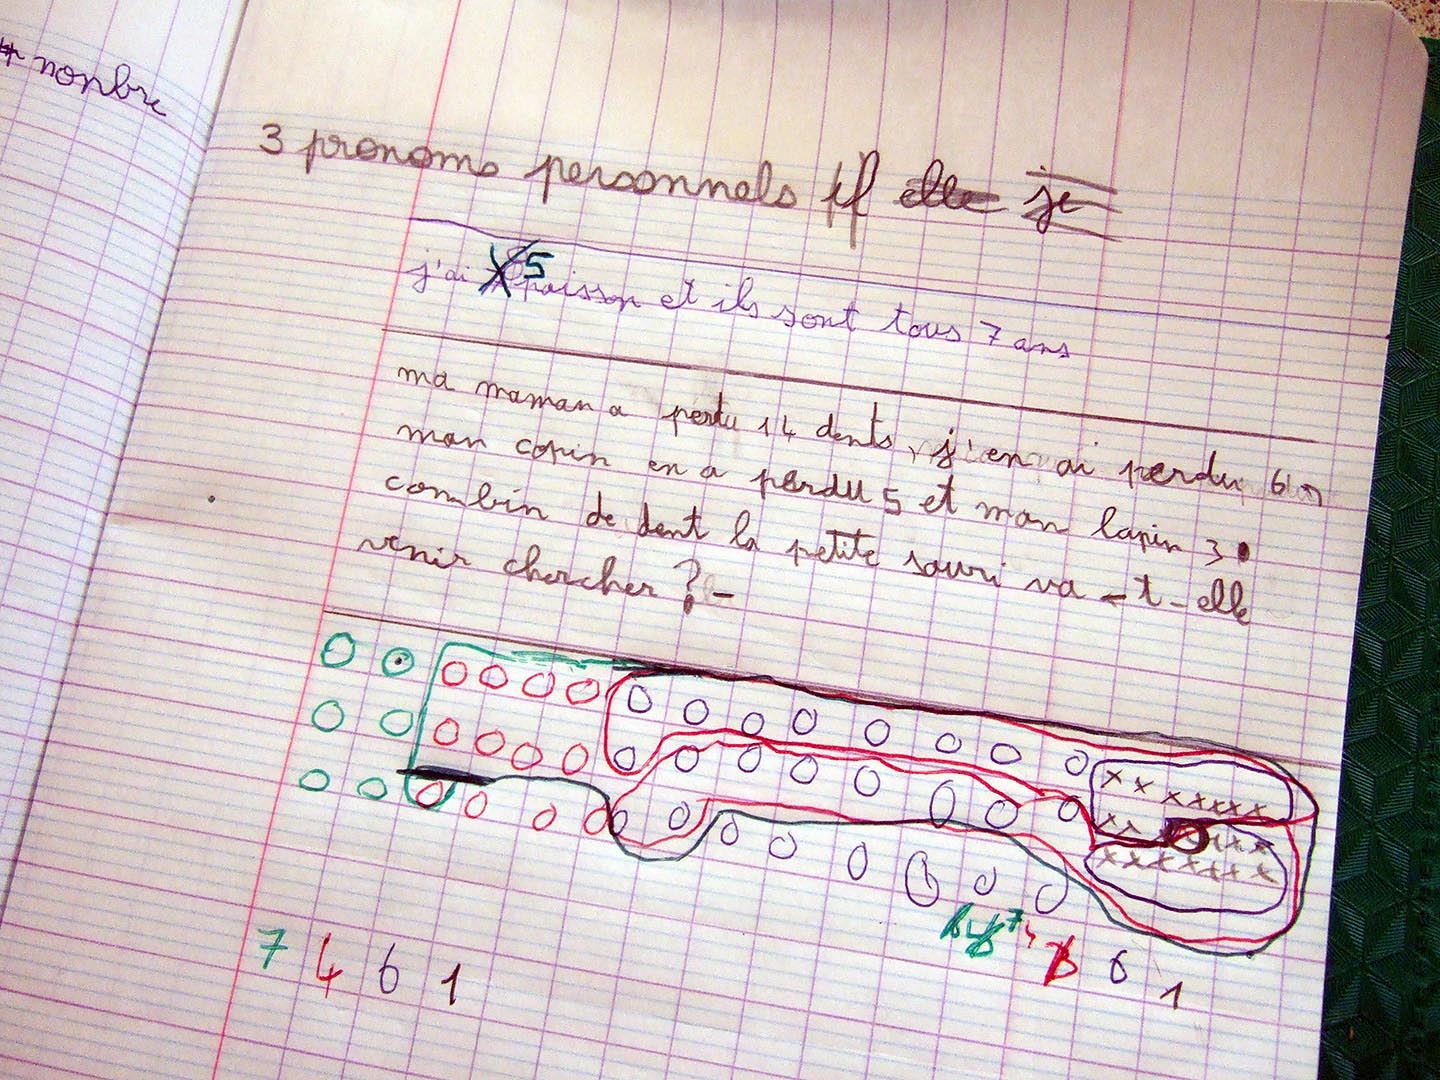 nonbre
3 pronoms personnels elle je
j'ai 5 poisson et ils sont tous 7 ans
ma maman a perdu 14 dents, j'en ai perdu 6
mon copin en a perdu 5 et mon lapin 3.
conbin de dent la petite souri va-t-elle
venir chercher ?
7 4 6 1
7 4 6 1